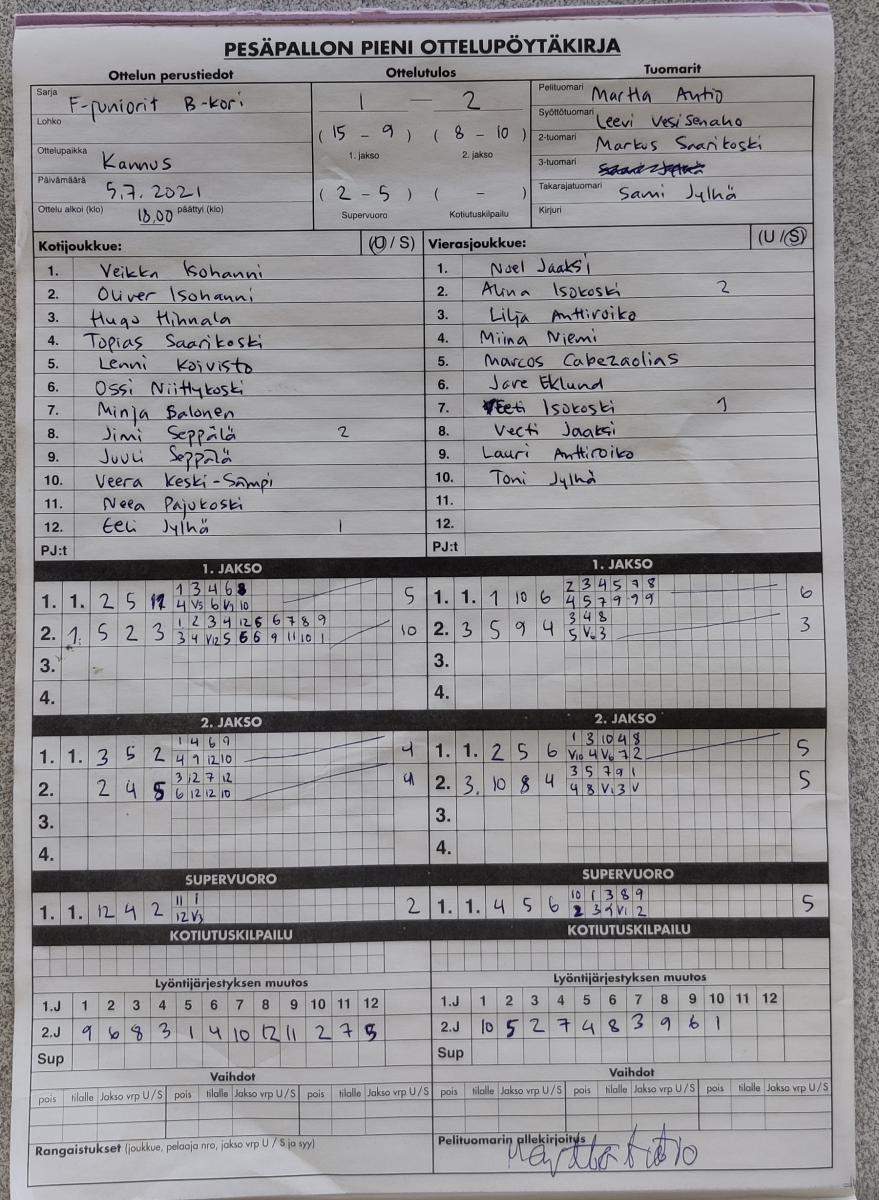 PESÄPALLON PIENI OTTELUPÖYTÄKIRJA
Ottelun perustiedot Ottelutulos Tuomarit
Sarja F-juniorit B-kori
Lohko
Ottelupaikka Kannus
Päivämäärä 5.7.2021
Ottelu alkoi (klo) 18.00 päättyi (klo)
1 — 2
(15 - 9) (8 - 10)
1. jakso 2. jakso
(2 - 5) ( - )
Supervuoro Kotiutuskilpailu
Pelituomari Martta Autio
Syöttötuomari Leevi Vesisenaho
2-tuomari Markus Saarikoski
3-tuomari
Takarajatuomari Sami Jylhä
Kirjuri
Kotijoukkue: (U / S)
1. Veikka Isohanni
2. Oliver Isohanni
3. Hugo Hihnala
4. Topias Saarikoski
5. Lenni Koivisto
6. Ossi Niittykoski
7. Minja Salonen
8. Jimi Seppälä 2
9. Juuli Seppälä
10. Veera Keski-Sämpi
11. Neea Pajukoski
12. Eeli Jylhä 1
PJ:t
Vierasjoukkue: (U / S)
1. Noel Jaaksi
2. Alina Isokoski 2
3. Lilja Anttiroiko
4. Miina Niemi
5. Marcos Cabezaolias
6. Jare Eklund
7. Veeti Isokoski 1
8. Veeti Jaaksi
9. Lauri Anttiroiko
10. Toni Jylhä
11.
12.
PJ:t
1. JAKSO
1. 1. 2 5 12 1 3 4 6 8 5
4 V5 6 V1 10
2. 1. 5 2 3 1 2 3 4 12 5 6 7 8 9 10
3 4 V12 5 6 6 9 11 10 1
3.
4.
1. JAKSO
1. 1. 1 10 6 2 3 4 5 7 8 6
4 5 7 9 9 9
2. 3 5 9 4 3 4 8 3
5 V6 3
3.
4.
2. JAKSO
1. 1. 3 5 2 1 4 6 9 4
4 9 12 10
2. 2 4 5 3 12 7 12 4
6 12 12 10
3.
4.
2. JAKSO
1. 1. 2 5 6 1 3 10 4 8 5
V10 4 V6 7 2
2. 3. 10 8 4 3 5 7 9 1 5
4 8 V1 3 V
3.
4.
SUPERVUORO
1. 1. 12 4 2 11 1 2
12 V3
SUPERVUORO
1. 1. 4 5 6 10 1 3 8 9 5
2 3 4 V1 2
KOTIUTUSKILPAILU
KOTIUTUSKILPAILU
Lyöntijärjestyksen muutos
1.J 1 2 3 4 5 6 7 8 9 10 11 12
2.J 9 6 8 3 1 4 10 12 11 2 7 5
Sup
Lyöntijärjestyksen muutos
1.J 1 2 3 4 5 6 7 8 9 10 11 12
2.J 10 5 2 7 4 8 3 9 6 1
Sup
Vaihdot
pois tilalle Jakso vrp U / S pois tilalle Jakso vrp U / S pois tilalle Jakso vrp U / S
Vaihdot
pois tilalle Jakso vrp U / S pois tilalle Jakso vrp U / S pois tilalle Jakso vrp U / S
Rangaistukset (joukkue, pelaaja nro, jakso vrp U / S ja syy)
Pelituomarin allekirjoitus
Martta Autio